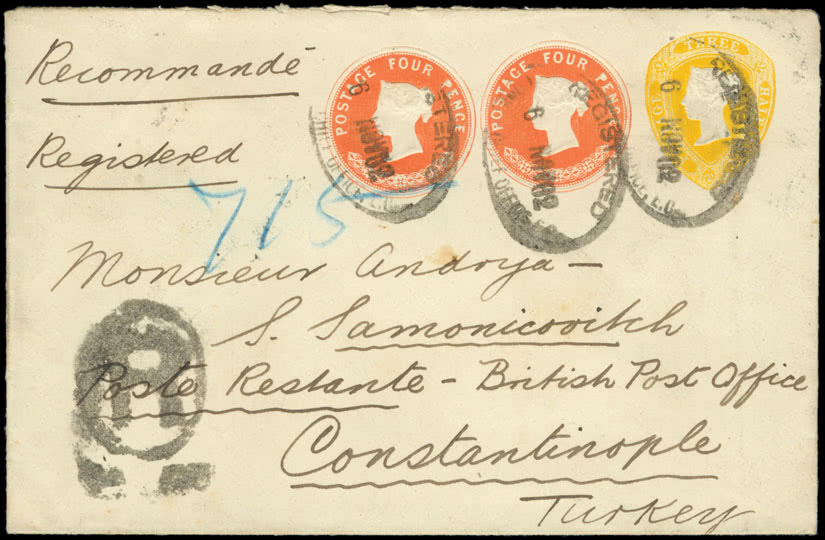 Recommandé
Registered
POSTAGE FOUR PENCE
POSTAGE FOUR PENCE
THREE HALF
REGISTERED
6 MY 02
REGISTERED
6 MY 02
REGISTERED
6 MY 02
715
Monsieur Andrya –
S. Samonicovitch
Poste Restante – British Post Office
Constantinople
Turkey
R